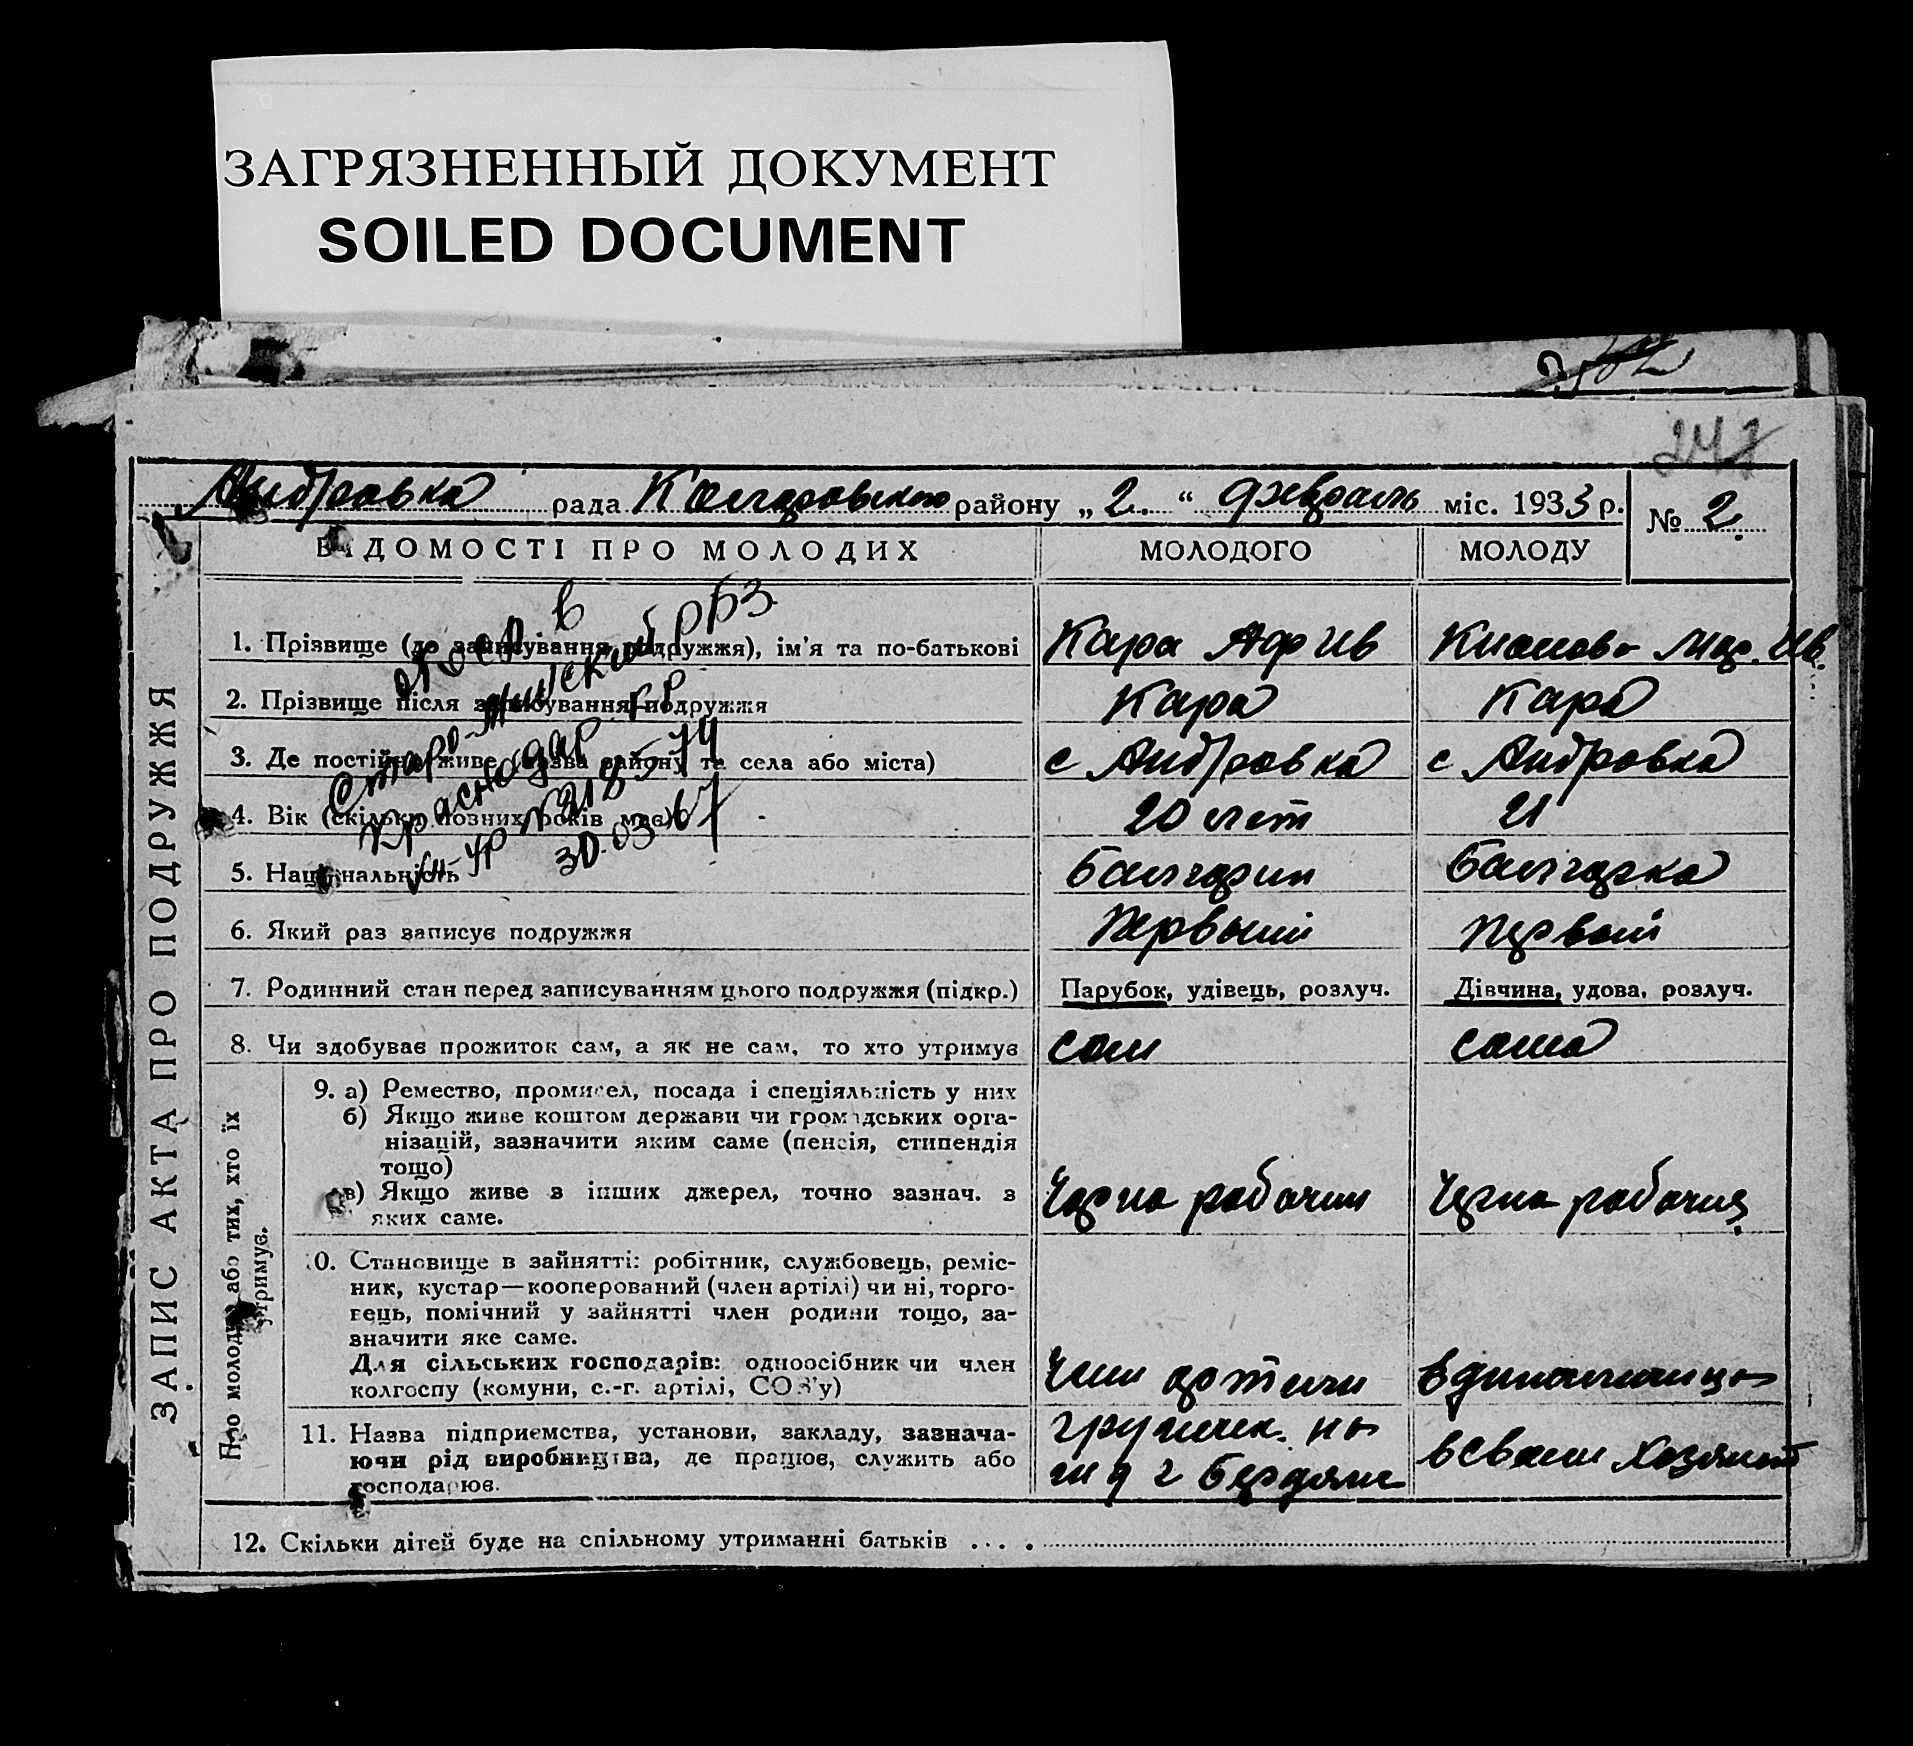 ЗАГРЯЗНЕННЫЙ ДОКУМЕНТ
SOILED DOCUMENT
247
Андровка рада району „2“ февраль міс. 1933 р. № 2
ВІДОМОСТІ ПРО МОЛОДИХ МОЛОДОГО МОЛОДУ
ЗАПИС АКТА ПРО ПОДРУЖЖЯ
1. Прізвище (до записування подружжя), ім'я та по-батькові Кара Аф Ив Мар. Ив.
2. Прізвище після записування подружжя Кара Кара
3. Де постійно живе (назва району та села або міста) с Андровка с Андровка
4. Вік (скільки повних років має) 20 лет 21
5. Національність Болгарин Болгарка
6. Який раз записує подружжя Первый первый
7. Родинний стан перед записуванням цього подружжя (підкр.) Парубок, удівець, розлуч. Дівчина, удова, розлуч.
8. Чи здобуває прожиток сам, а як не сам, то хто утримує сам сама
Про молодих або тих, хто їх утримує.
9. а) Ремество, промисел, посада і спеціяльність у них
б) Якщо живе коштом держави чи громадських орга-
нізацій, зазначити яким саме (пенсія, стипендія
тощо)
в) Якщо живе з інших джерел, точно зазнач. з
яких саме.
Черно рабочий Черно рабочия
10. Становище в зайнятті: робітник, службовець, реміс-
ник, кустар—кооперований (член артілі) чи ні, торго-
вець, помічний у зайнятті член родини тощо, за-
значити яке саме.
Для сільських господарів: одноосібник чи член
колгоспу (комуни, с.-г. артілі, СОЗ'у)
Член артели
11. Назва підприємства, установи, закладу, зазнача-
ючи рід виробництва, де працює, служить або
господарює.
в своем хозяйст
12. Скільки дітей буде на спільному утриманні батьків . . . .
в
Краснодар
30.03.67